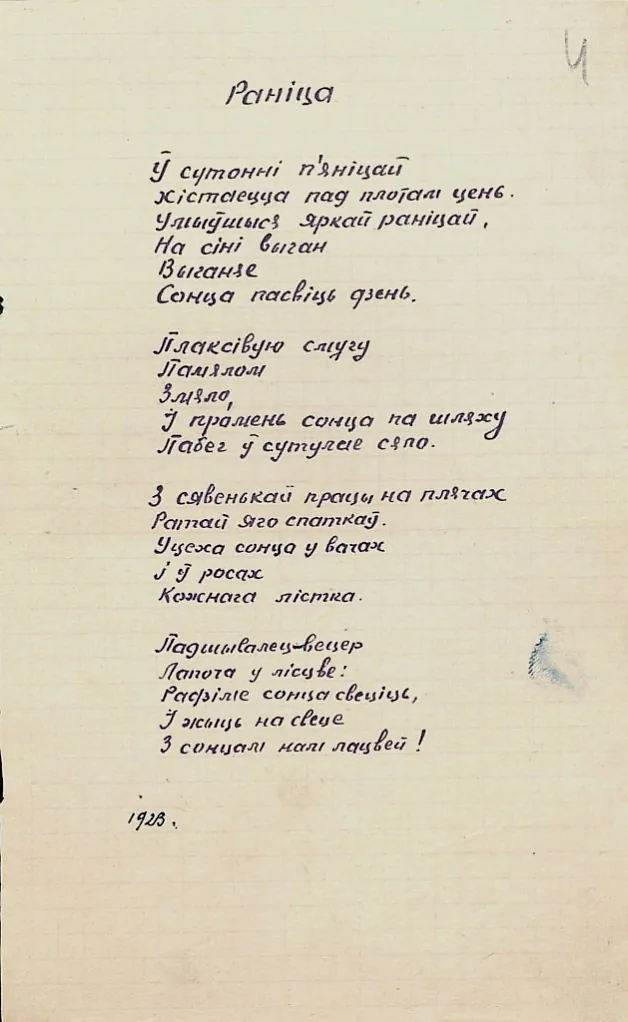 4
Раніца
Ў сутонні п'яніцай
Хістаецца пад плотам цень.
Умыўшыся яркай раніцай,
На сіні выган
Выганяе
Сонца пасвіць дзень.
Плаксівую смугу
Памялом
Змяло,
І прамень сонца па шляху
Пабег ў сутулае сяло.
З сявенькай працы на плячах
Ратай яго спаткаў.
Уцеха сонца у вачах
І ў росах
Кожнага лістка.
Падшывалец-вецер
Лапоча у лісцве:
Расфіліе сонца свеціць,
І жыць на свеце
З сонцам нам лацвей!
1923.